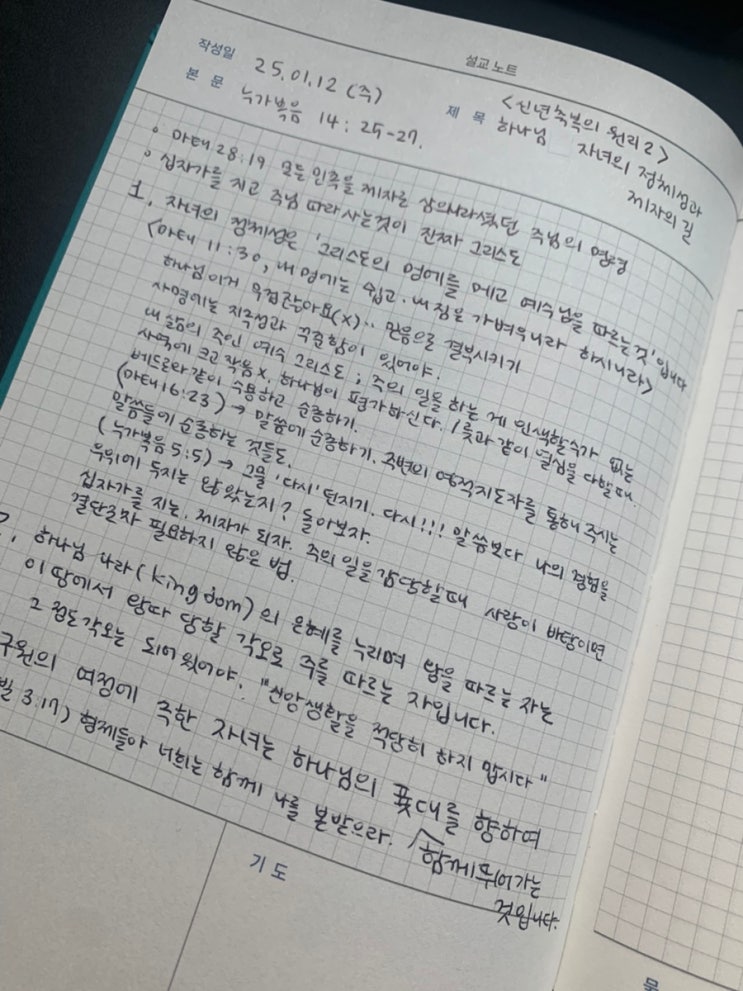 설교 노트
작성일 25.01.12 (주)
본 문 누가복음 14 : 25-27.
제 목 <신년축복의 원리 2>
하나님 자녀의 정체성과
제자의 길
• 마태 28:19 모든 민족을 제자로 삼으나라셨던 주님의 명령
• 십자가를 지고 주님 따라 사는것이 진짜 그리스도
1. 자녀의 정체성은 '그리스도의 멍에를 메고 예수님을 따르는것' 입니다
<마태 11:30, 내 멍에는 쉽고. 내 짐은 가벼우니라 하시니라>
하나님 이거 우연찮아요(x).. 믿음으로 결부시키기
사명에는 지속성과 꾸준함이 있어야.
내 삶의 주인 예수 그리스도 ; 주의 일을 하는 게 인색할수가 없는
사역에 크고 작음 x. 하나님이 평가하신다. / 룻과 같이 열심을 다할때.
베드로와같이 수용하고 순종하기.
(마태 16:23) → 말씀에 순종하기. 주변의 영적지도자를 통해 주시는
말씀들에 순종하는 것들도.
(누가복음 5:5) → 그물 '다시' 던지기. 다시!!! 말씀보다 나의 경험을
우위에 두지는 않았는지? 돌아보자.
십자가를 지는, 제자가 되자. 주의 일을 감당할때 사랑이 바탕이면
결단조차 필요하지 않은 법.
2. 하나님 나라(kingdom)의 은혜를 누리며 땅을 따르는 자는
이 땅에서 왕따 당할 각오로 주를 따르는 자입니다.
그 정도 각오는 되어 있어야. "신앙생활을 적당히 하지 맙시다"
구원의 여정에 속한 자녀는 하나님의 푯대를 향하여
함께 뛰어가는
것입니다.
빌 3:17) 형제들아 너희는 함께 나를 본받으라.
기 도